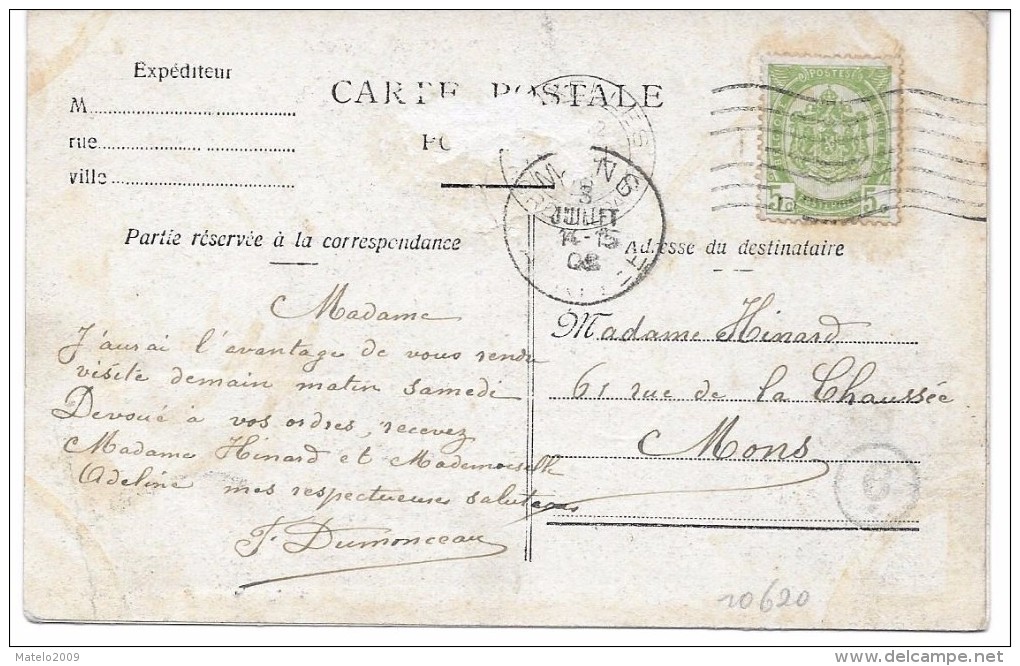 Expéditeur
M
rue
ville
CARTE POSTALE
Partie réservée à la correspondance
Madame
J'aurai l'avantage de vous rendre
visite demain matin samedi
Devoué à vos ordres, recevez
Madame Hinard et Mademoiselle
Adeline mes respectueuses salutations
F. Dumonceau
MONS
3
JUILLET
14-15
08
POSTES
5c 5c
Adresse du destinataire
Madame Hinard
61 rue de la Chaussée
Mons
10620
Matelo2009
www.delcampe.net